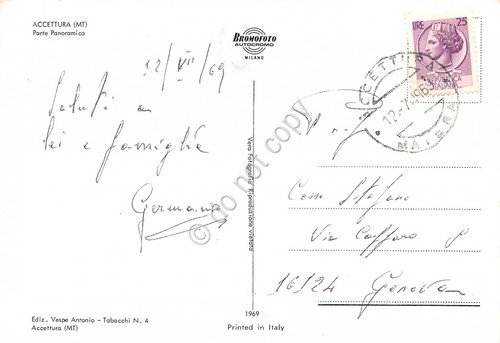 ACCETTURA (MT)
Parte Panoramica
BROMOFOTO
AUTOCROMO
MILANO
LIRE 25
ACCETTURA
12-7-1969
MATERA
12/VII/69
Saluti a
lei e famiglia
Germano
Casa Stefano
Via Caffaro
16124 Genova
Vera Fotografia - Riproduzione Vietata
do not copy
Ediz. Vespe Antonio - Tabacchi N. 4
Accettura (MT)
1969
Printed in Italy